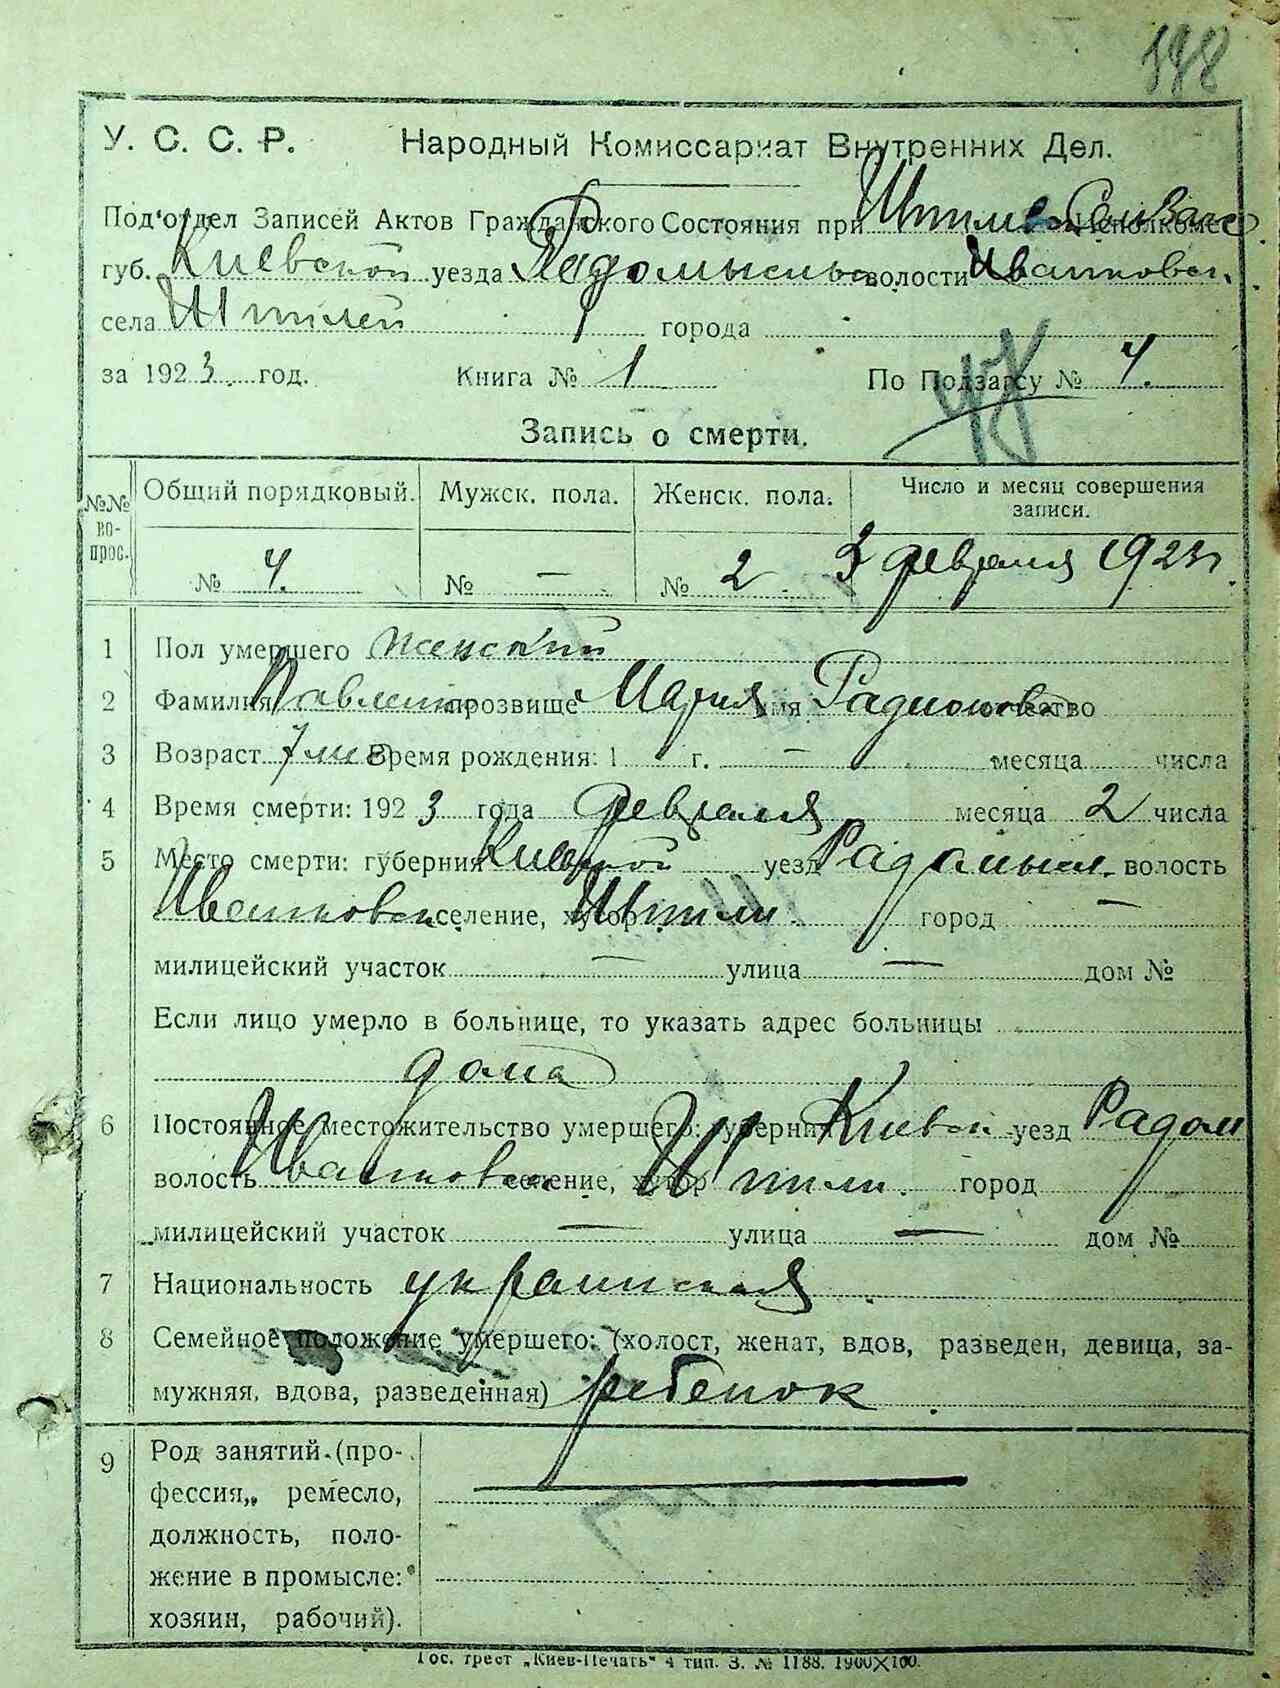 У. С. С. Р. Народный Комиссариат Внутренних Дел.
Под'отдел Записей Актов Гражданского Состояния при Исполкоме
губ. Киевской уезда волости
села Штилей города
за 1923 год. Книга № 1 По Подзагсу № 4.
Запись о смерти.
№№ вопрос. Общий порядковый. Мужск. пола. Женск. пола. Число и месяц совершения
записи.
№ 4. № — № 2 3 февраля 1923 г.
1 Пол умершего женский
2 Фамилия прозвище Мария имя Радионовна отчество
3 Возраст 7 Время рождения: 1 г. — месяца числа
4 Время смерти: 1923 года февраля месяца 2 числа
5 Место смерти: губерния Киевской уезд Радомысл. волость
селение, хутор Штили город —
милицейский участок — улица — дом №
Если лицо умерло в больнице, то указать адрес больницы
дома
6 Постоянное местожительство умершего: губерния Киевск уезд Радом
волость селение, хутор Штили. город
милицейский участок — улица — дом №
7 Национальность украинская
8 Семейное положение умершего: (холост, женат, вдов, разведен, девица, за-
мужняя, вдова, разведенная) ребенок
9 Род занятий (про-
фессия, ремесло,
должность, поло-
жение в промысле:
хозяин, рабочий).
Гос. трест „Киев-Печать" 4 тип. З. № 1188. 1900X100.